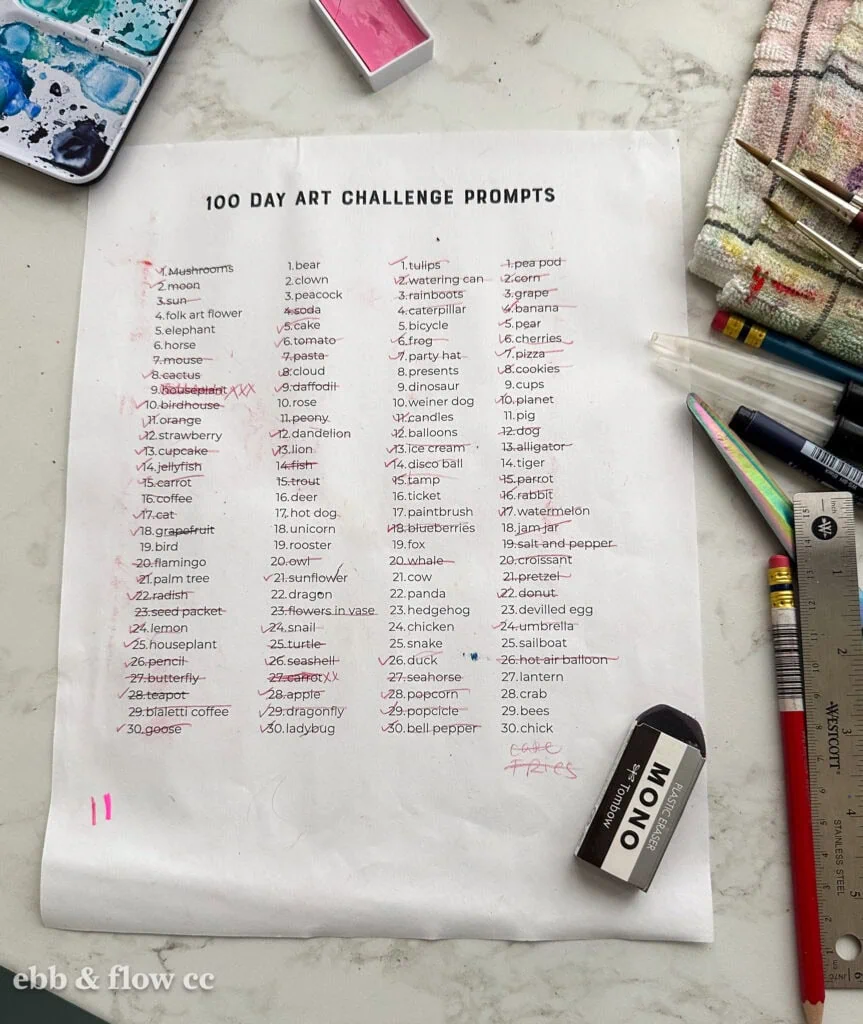 100 DAY ART CHALLENGE PROMPTS
1.Mushrooms
2.moon
3.sun
4.folk art flower
5.elephant
6.horse
7.mouse
8.cactus
9.houseplant XXX
10.birdhouse
11.orange
12.strawberry
13.cupcake
14.jellyfish
15.carrot
16.coffee
17.cat
18.grapefruit
19.bird
20.flamingo
21.palm tree
22.radish
23.seed packet
24.lemon
25.houseplant
26.pencil
27.butterfly
28.teapot
29.bialetti coffee
30.goose
1.bear
2.clown
3.peacock
4.soda
5.cake
6.tomato
7.pasta
8.cloud
9.daffodil
10.rose
11.peony
12.dandelion
13.lion
14.fish
15.trout
16.deer
17.hot dog
18.unicorn
19.rooster
20.owl
21.sunflower
22.dragon
23.flowers in vase
24.snail
25.turtle
26.seashell
27.carrot XX
28.apple
29.dragonfly
30.ladybug
1.tulips
2.watering can
3.rainboots
4.caterpillar
5.bicycle
6.frog
7.party hat
8.presents
9.dinosaur
10.weiner dog
11.candles
12.balloons
13.ice cream
14.disco ball
15.tamp
16.ticket
17.paintbrush
18.blueberries
19.fox
20.whale
21.cow
22.panda
23.hedgehog
24.chicken
25.snake
26.duck
27.seahorse
28.popcorn
29.popcicle
30.bell pepper
1.pea pod
2.corn
3.grape
4.banana
5.pear
6.cherries
7.pizza
8.cookies
9.cups
10.planet
11.pig
12.dog
13.alligator
14.tiger
15.parrot
16.rabbit
17.watermelon
18.jam jar
19.salt and pepper
20.croissant
21.pretzel
22.donut
23.devilled egg
24.umbrella
25.sailboat
26.hot air balloon
27.lantern
28.crab
29.bees
30.chick
cake
FRIES
11
PLASTIC ERASER
MONO
Tombow
W
WESTCOTT
STAINLESS STEEL
ebb & flow cc